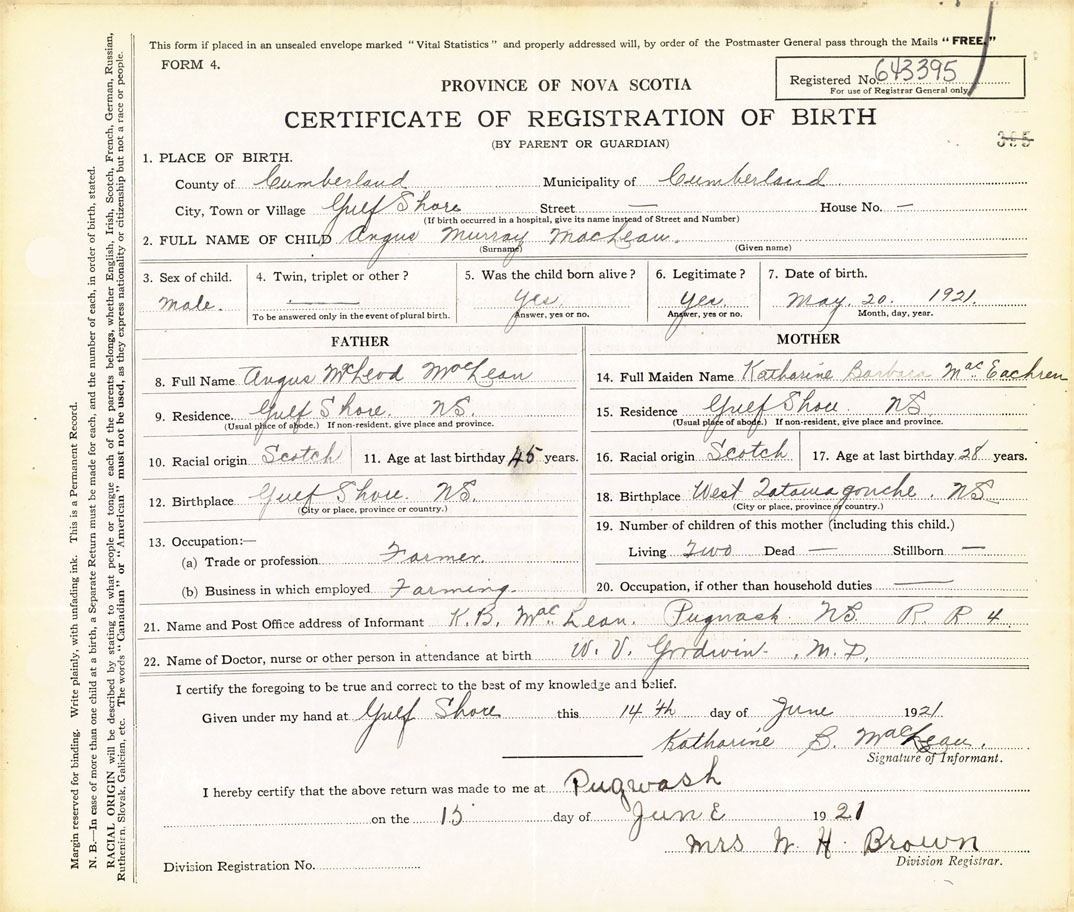 This form if placed in an unsealed envelope marked "Vital Statistics" and properly addressed will, by order of the Postmaster General pass through the Mails "FREE."
FORM 4.
Registered No. 643395
For use of Registrar General only
PROVINCE OF NOVA SCOTIA
CERTIFICATE OF REGISTRATION OF BIRTH
(BY PARENT OR GUARDIAN)
395
1. PLACE OF BIRTH.
County of Cumberland Municipality of Cumberland
City, Town or Village Gulf Shore Street — House No. —
(If birth occurred in a hospital, give its name instead of Street and Number)
2. FULL NAME OF CHILD Angus Murray MacLean.
(Surname) (Given name)
3. Sex of child. 4. Twin, triplet or other? 5. Was the child born alive? 6. Legitimate? 7. Date of birth.
Male. — Yes. Yes. May. 20. 1921.
To be answered only in the event of plural birth. Answer, yes or no. Answer, yes or no. Month, day, year.
FATHER
8. Full Name Angus McLeod MacLean
9. Residence. Gulf Shore. NS.
(Usual place of abode.) If non-resident, give place and province.
10. Racial origin Scotch 11. Age at last birthday 45 years.
12. Birthplace Gulf Shore. NS.
(City or place, province or country.)
13. Occupation:—
(a) Trade or profession Farmer.
(b) Business in which employed Farming.
MOTHER
14. Full Maiden Name Katharine Barbara Mac.Eachren
15. Residence Gulf Shore. NS
(Usual place of abode.) If non-resident, give place and province.
16. Racial origin Scotch 17. Age at last birthday 28 years.
18. Birthplace West Tatamagouche. NS
(City or place, province or country.)
19. Number of children of this mother (including this child.)
Living Two Dead — Stillborn —
20. Occupation, if other than household duties —
21. Name and Post Office address of Informant K.B. Mac.Lean. Pugwash. NS. R. R 4.
22. Name of Doctor, nurse or other person in attendance at birth W. V. Goodwin. M.D.
I certify the foregoing to be true and correct to the best of my knowledge and belief.
Given under my hand at Gulf Shore this 14th day of June 1921
Katharine B. MacLean.
Signature of Informant.
I hereby certify that the above return was made to me at Pugwash
on the 15 day of JunE 1921
Mrs W. H. Brown
Division Registrar.
Division Registration No.
Margin reserved for binding. Write plainly, with unfading ink. This is a Permanent Record.
N. B.—In case of more than one child at a birth, a Separate Return must be made for each, and the number of each, in order of birth, stated.
RACIAL ORIGIN will be described by stating to what people or tongue each of the parents belongs, whether English, Irish, Scotch, French, German, Russian,
Ruthenian, Slovak, Galician, etc. The words "Canadian" or "American" must not be used, as they express nationality or citizenship but not a race or people.